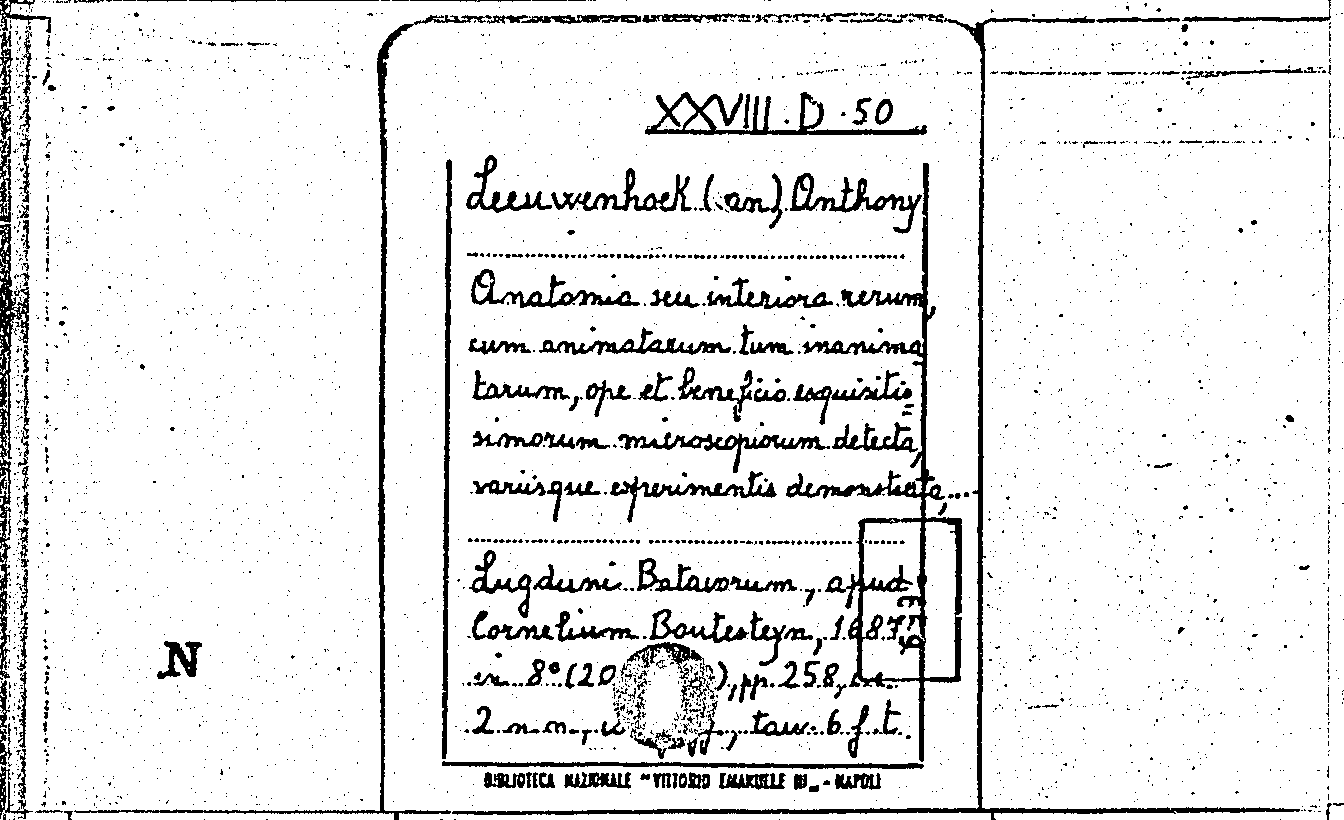 XXVIII.D.50
Leeuwenhoek (van), Anthony
Anatomia seu interiora rerum,
cum animatarum tum inanima
tarum, ope et beneficio exquisitis=
simorum microscopiorum detecta,
variisque experimentis demonstrata,...
Lugduni Batavorum, apud
Cornelium Boutesteyn, 1687.
in 8° (20 ), pp. 258,
2 n. n., tav. 6 f. t.
BIBLIOTECA NAZIONALE "VITTORIO EMANUELE III„ - NAPOLI
N